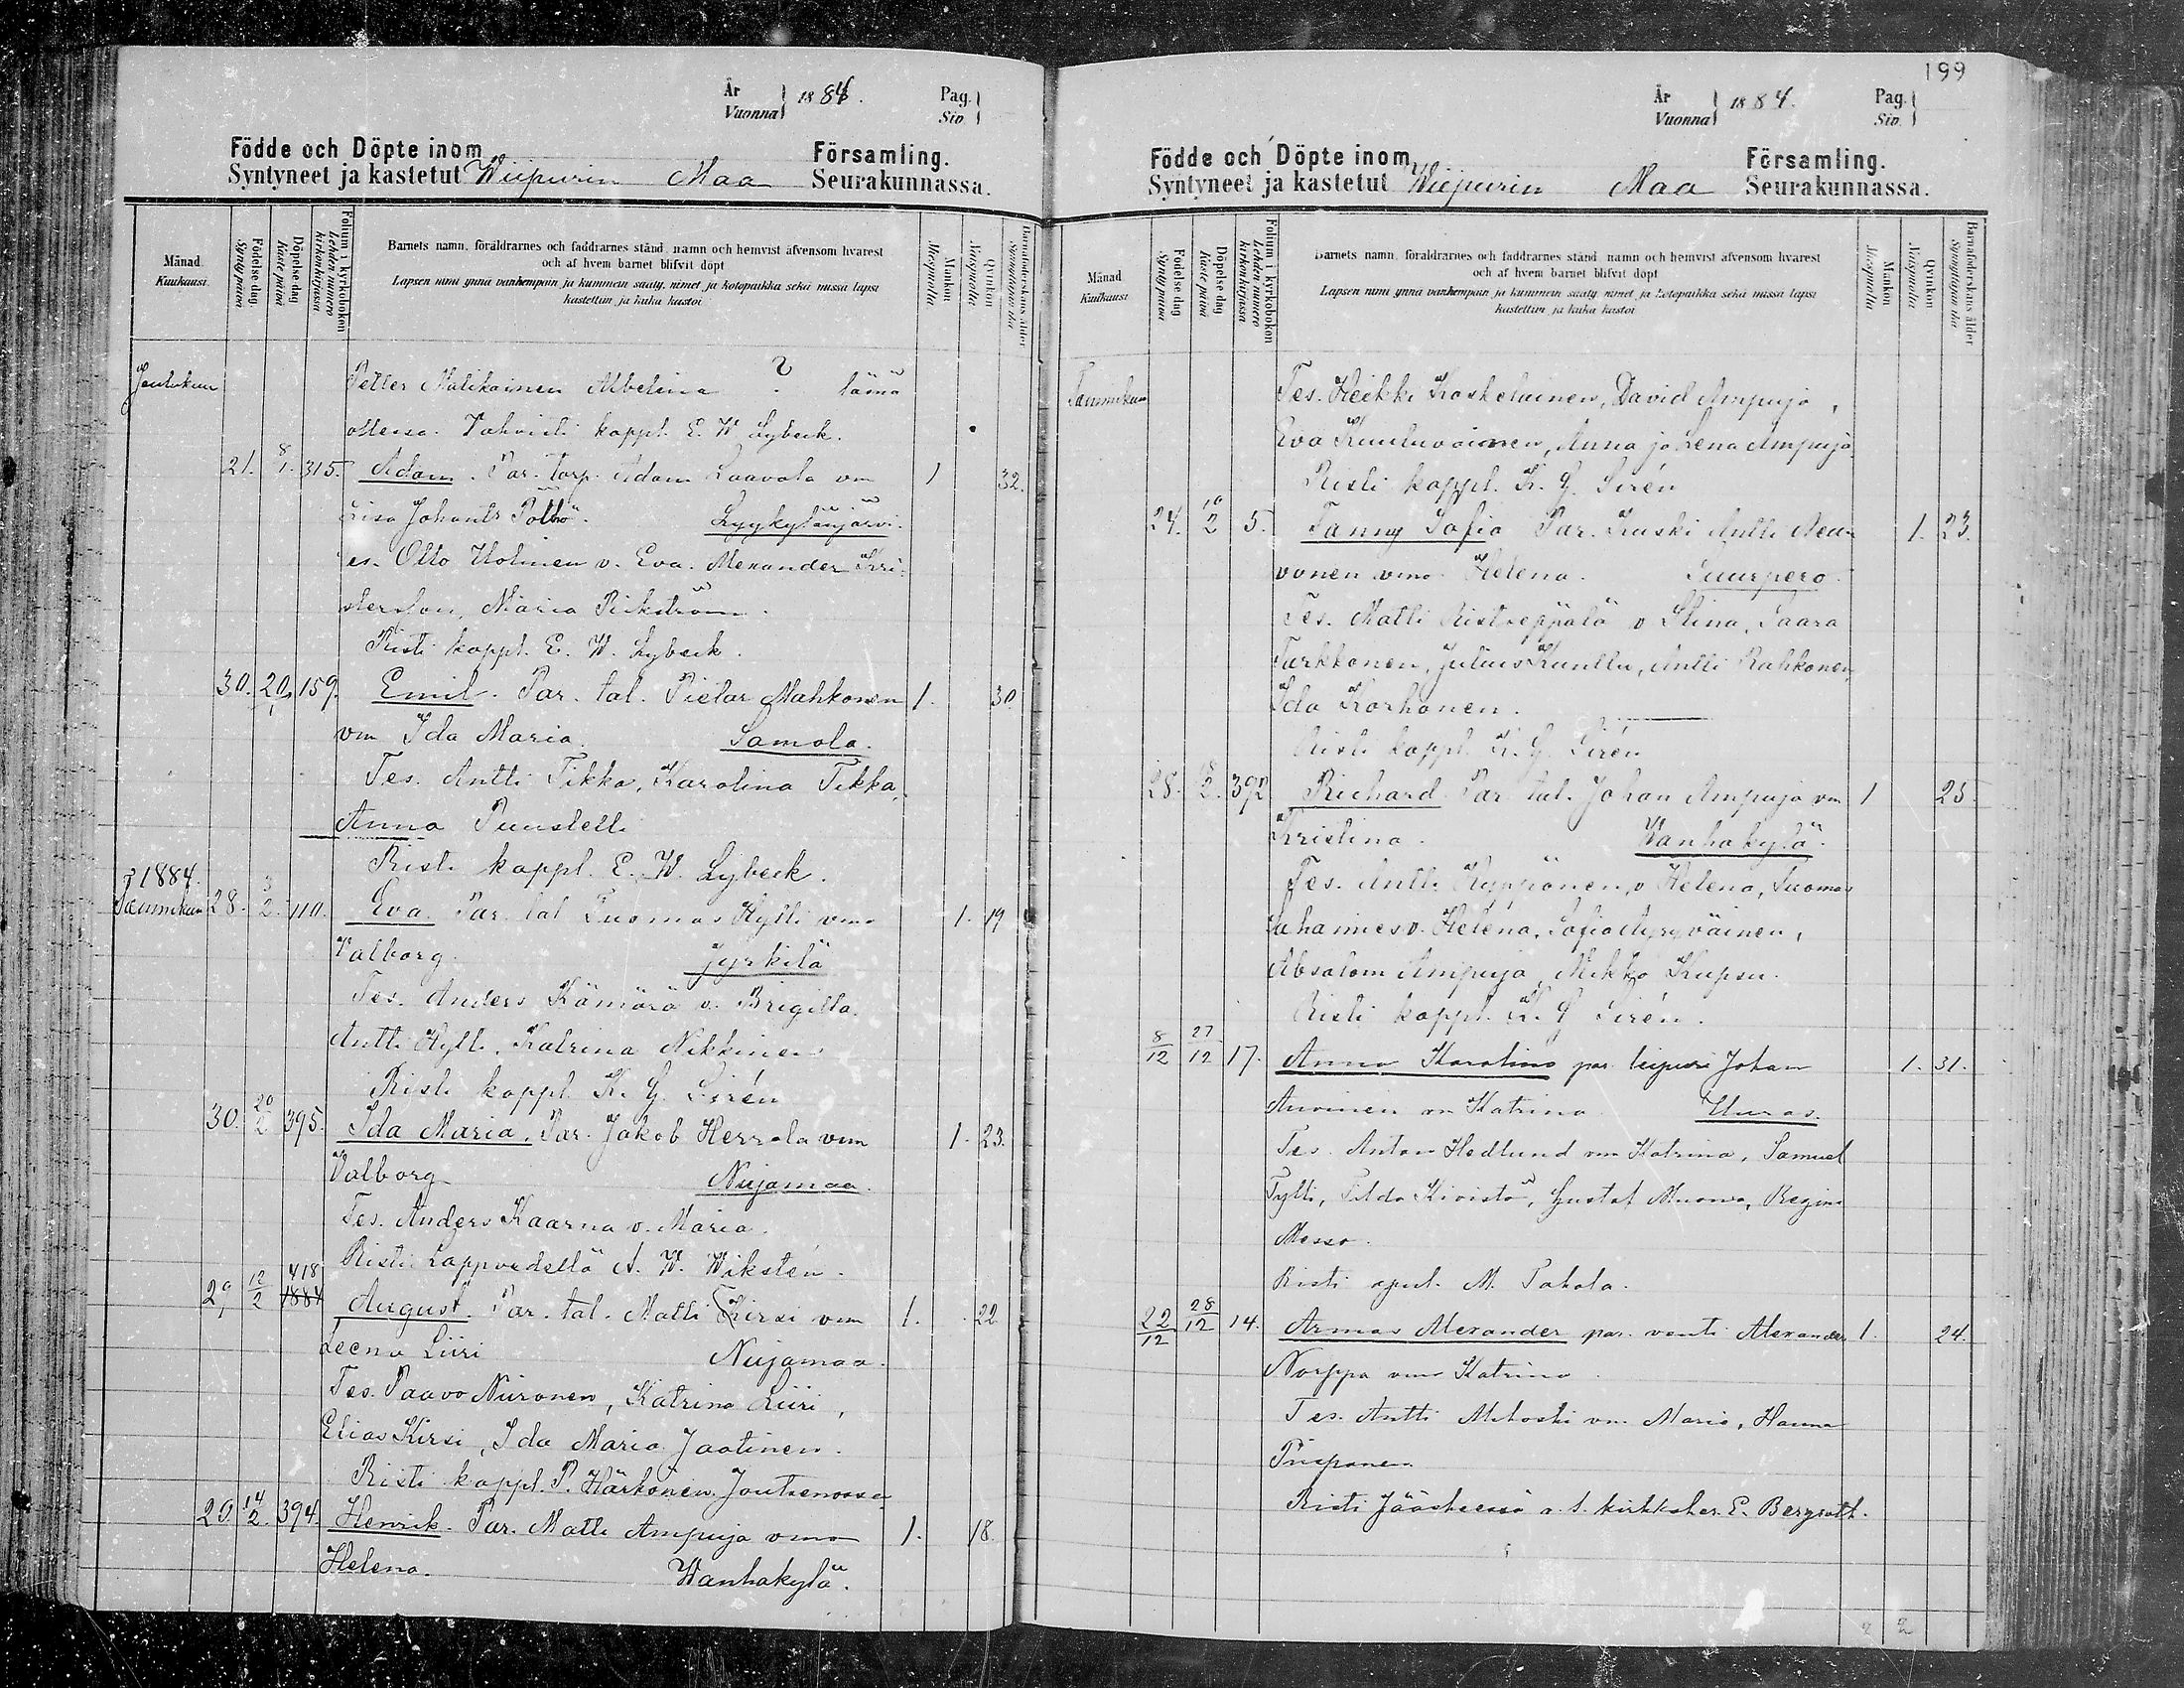 År
Vuonna
1884.
Pag.
Siv.
Födde och Döpte inom
Församling.
Syntyneet ja kastetut Wiipurin Maa Seurakunnassa.
Månad
Kuukausi
Födelse dag
Syntypäivä
Döpelse dag
Kaste päivä
Folium i kyrkoboken
Lehden numero kirkonkirjassa
Barnets namn, föräldrarnes och faddrarnes stånd, namn och hemvist äfvensom hvarest
och af hvem barnet blifvit döpt
Lapsen nimi ynnä vanhempain ja kummein sääty, nimet ja kotopaikka sekä missä lapsi
kastettiin ja kuka kastoi
Mankön
Miespuolia
Qvinkön
Vaispuolia
Barnaföderskans ålder
Synnyttäjän ikä
Joulukuu
Petter Matikainen Albetina ?
ollessa. Vahvisti kappl. E. W. Lybeck.
21. 8/1. 315. Adam. Par. torp. Adam Laavola vm 1 32.
Lisa Johants Pöllö. Lyykylänjärvi.
es. Otto Holmen v. Eva. Alexander Kri-
sterson, Maria Rikström.
Risti kappl. E. W. Lybeck.
30. 20/1 159. Emil. Par. tal. Pietar Mahkonen 1. 30
vm Ida Maria. Samola.
Tes. Antti Tikka, Karolina Tikka,
Anna Puustelli
Risti kappl. E. W. Lybeck.
1884.
Tammikuu 28. 3/2. 110. Eva. Par. tal Tuomas Hytti vmo 1. 19
Valborg. Jyrkilä
Tes. Anders Kämärä v. Brigitta.
Antti Hytti, Katrina Nikkinen
Risti kappl. K. G. Sirén
30. 20/2 395. Ida Maria. Par. Jakob Herrala vm 1. 23.
Valborg Nujamaa.
Tes. Anders Kaarna v. Maria.
Risti Lappvedellä A. W. Wikstén.
29, 12/2 418 1884 August. Par. tal. Matti Kirsi vm 1. 22
Leena Liiri Nujamaa.
Tes. Paavo Niironen, Katrina Liiri,
Elias Kirsi, Ida Maria Jaatinen.
Risti kappl. P. Härkönen Joutsenossa
29. 14/2. 394. Henrik. Par. Matti Ampuja vmo 1. 18.
Helena. Wanhakylä.
199
År
Vuonna
1884.
Pag.
Siv.
Födde och Döpte inom
Församling.
Syntyneet ja kastetut Wiipurin Maa Seurakunnassa.
Månad
Kuukausi
Födelse dag
Syntypäivä
Döpelse dag
Kaste päivä
Folium i kyrkoboken
Lehden numero kirkonkirjassa
Barnets namn, föräldrarnes och faddrarnes stånd, namn och hemvist äfvensom hvarest
och af hvem barnet blifvit döpt
Lapsen nimi ynnä vanhempain ja kummein sääty, nimet ja kotopaikka sekä missä lapsi
kastettiin ja kuka kastoi
Mankön
Miespuolia
Qvinkön
Vaispuolia
Barnaföderskans ålder
Synnyttäjän ikä
Tammikuu
Tes. Heikki Koskelainen, David Ampuja,
Eva Kuuluvainen, Anna ja Lena Ampuja
Risti kappl. K. G. Sirén
24. 10/2 5. Fanny Sofia Par. Kuski Antti 1. 23.
vonen vmo Helena. Suurpero
Tes. Matti Ristseppälä v Stina, Saara
Turkkonen, Julius Kunttu, Antti Rahkonen,
Ida Korhonen.
Risti kappl. K. G. Sirén
28. 18/2. 392 Richard. Par. tal. Johan Ampuja vm 1 25.
Kristina. Wanhakylä.
Tes. Antti Kyppönen, v Helena, Tuomas
Juhannes v. Helena, Sofia Myryväinen,
Absalom Ampuja, Mikko Kupsu.
Risti kappl. K. G Sirén.
8/12 27/12 17. Anna Karolina par. leipuri Johan 1. 31.
Auvinen vm Katrina Uuras.
Tes. Anton Hedlund vm Katrina, Samuel
Tytti, Tilda Kivistö, Gustaf Muona, Regina
Messo.
Risti apul. M. Tahola.
22/12 28/12 14. Armas Alexander par. vahti Alexander 1. 24.
Norppa vm Katrina.
Tes. Antti vm Maria, Hanna
Piiponen
Risti Jääskessä a. t. kirkkoher. E. Bergroth.